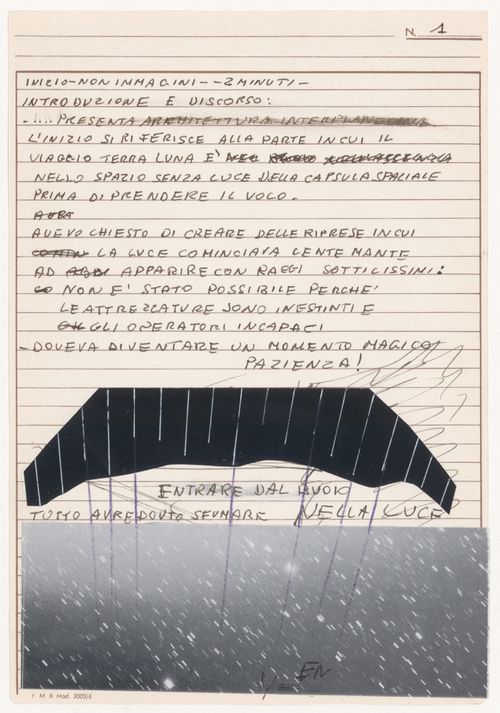 N. 1
INIZIO-NON IMMAGINI--2 MINUTI-
INTRODUZIONE E DISCORSO:
PRESENTA ARCHITETTURA INTERPLANETARIA
L'INIZIO SI RIFERISCE ALLA PARTE IN CUI IL
VIAGGIO TERRA LUNA E'
NELLO SPAZIO SENZA LUCE DELLA CAPSULA SPAZIALE
PRIMA DI PRENDERE IL VOLO.
AVEVO CHIESTO DI CREARE DELLE RIPRESE IN CUI
LA LUCE COMINCIAVA LENTEMANTE
AD APPARIRE CON RAGGI SOTTILISSIMI:
NON E' STATO POSSIBILE PERCHE'
LE ATTREZZATURE SONO INESTINTI E
GLI OPERATORI INCAPACI
-DOVEVA DIVENTARE UN MOMENTO MAGICO
PAZIENZA!
ENTRARE DAL BUOIO
TUTTO AVREDOVUTO SFUMARE NELLA LUCE
EN
I. M. B. Mod. 3003/6